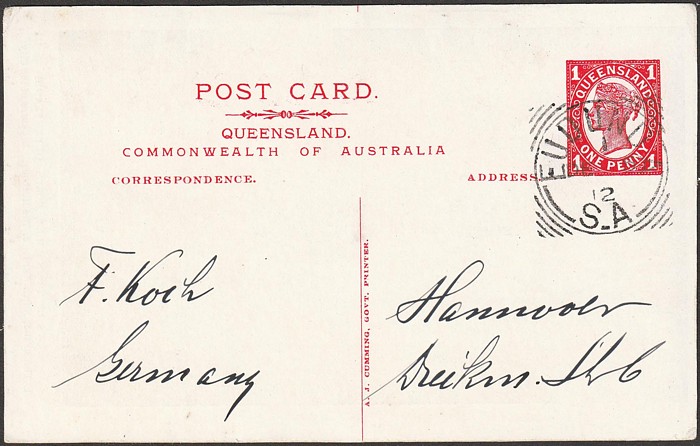 POST CARD.
QUEENSLAND.
COMMONWEALTH OF AUSTRALIA
CORRESPONDENCE.
ADDRESS
1 QUEENSLAND 1
1 ONE PENNY 1
12
S.A
F. Koch
Germany
A. J. CUMMING, GOVT. PRINTER.
Hannover